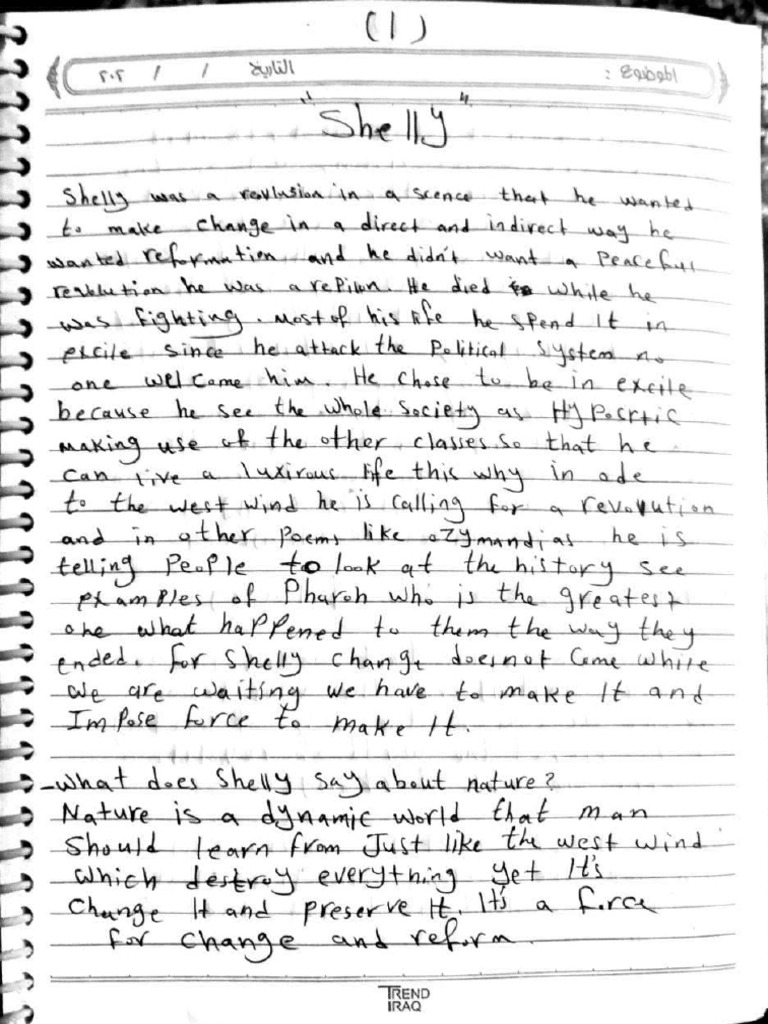 (1)
الموضوع : التاريخ / / ٢٠٢
"Shelly"
Shelly was a revlusion in a scence that he wanted
to make change in a direct and indirect way he
wanted reformation and he didn't want a peaceful
revolution he was a repilon. He died while he
was fighting. Most of his life he spend It in
excile since he attack the political system no
one welcome him. He chose to be in excile
because he see the whole society as Hypocrtic
making use of the other classes so that he
can live a luxirous life this why in ode
to the west wind he is calling for a revolution
and in other poems like ozymandias he is
telling people to look at the history see
examples of Pharoh who is the greatest
one what happened to them the way they
ended. for shelly change doesnot come while
we are waiting we have to make It and
Impose force to make It.
-What does Shelly say about nature?
Nature is a dynamic world that man
Should learn from Just like the west wind
which destroy everything yet It's
change It and preserve It. It's a force
for change and reform.
TREND
IRAQ